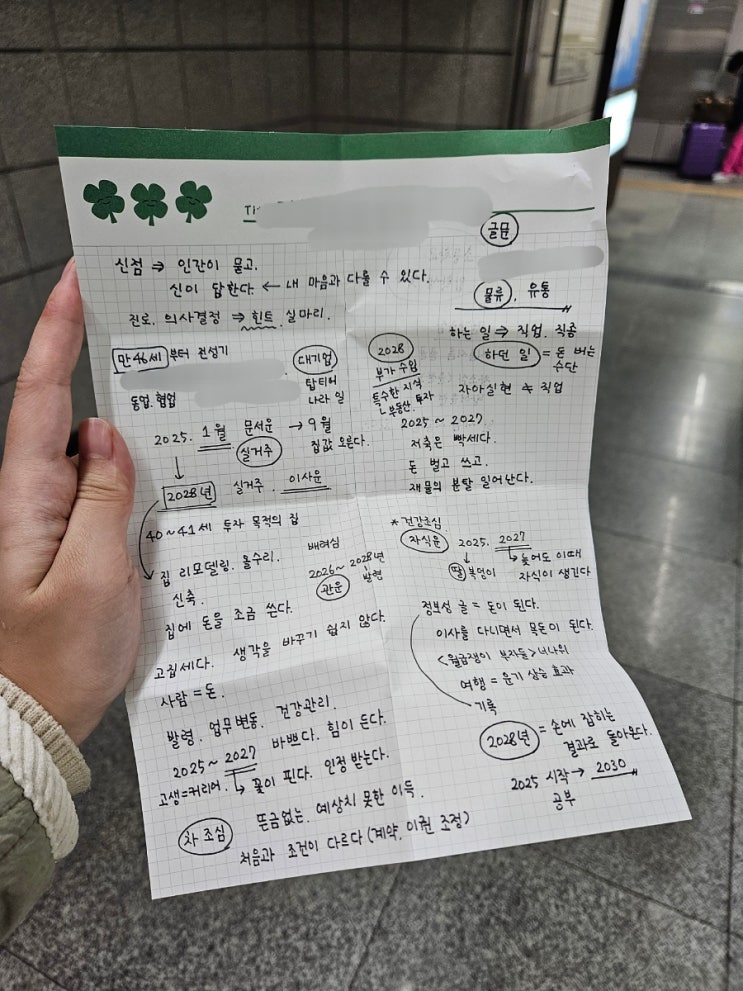 글문
신점 ⇒ 인간이 묻고.
신이 답한다. ← 내 마음과 다를 수 있다.
진로. 의사결정 ⇒ 힌트. 실마리.
만46세부터 전성기
동업. 협업
대기업
탑티어
나라 일
2025. 1월 문서운 → 9월
실거주 집값 오른다.
↓
2028년 실거주. 이사운
40~41세 투자 목적의 집
집 리모델링. 올수리.
신축.
집에 돈을 조금 쓴다.
배려심
2026~2028년
관운 발현
고집세다. 생각을 바꾸기 쉽지 않다.
사람=돈.
발령. 업무변동. 건강관리.
2025~2027 바쁘다. 힘이 든다.
고생=커리어. → 꽃이 핀다. 인정 받는다.
뜬금없는. 예상치 못한 이득.
차 조심
처음과 조건이 다르다 (계약. 이권 조정)
물류, 유통
하는 일 ⇒ 직업. 직종
하던 일 = 돈 버는
수단
자아실현 속 직업
2028
부가 수입
특수한 지식
ㄴ부동산. 투자
2025~2027
저축은 빡세다.
돈 벌고 쓰고.
재물의 분탈 일어난다.
*건강조심
자식운 2025. 2027
딸 복덩이
늦어도 이때
자식이 생긴다
정보성 글 = 돈이 된다.
이사를 다니면서 목돈이 된다.
<월급쟁이 부자들> 너나위
여행 = 운기 상승 효과
기록
2028년 = 손에 잡히는
결과로 돌아온다.
2025 시작 → 2030
공부